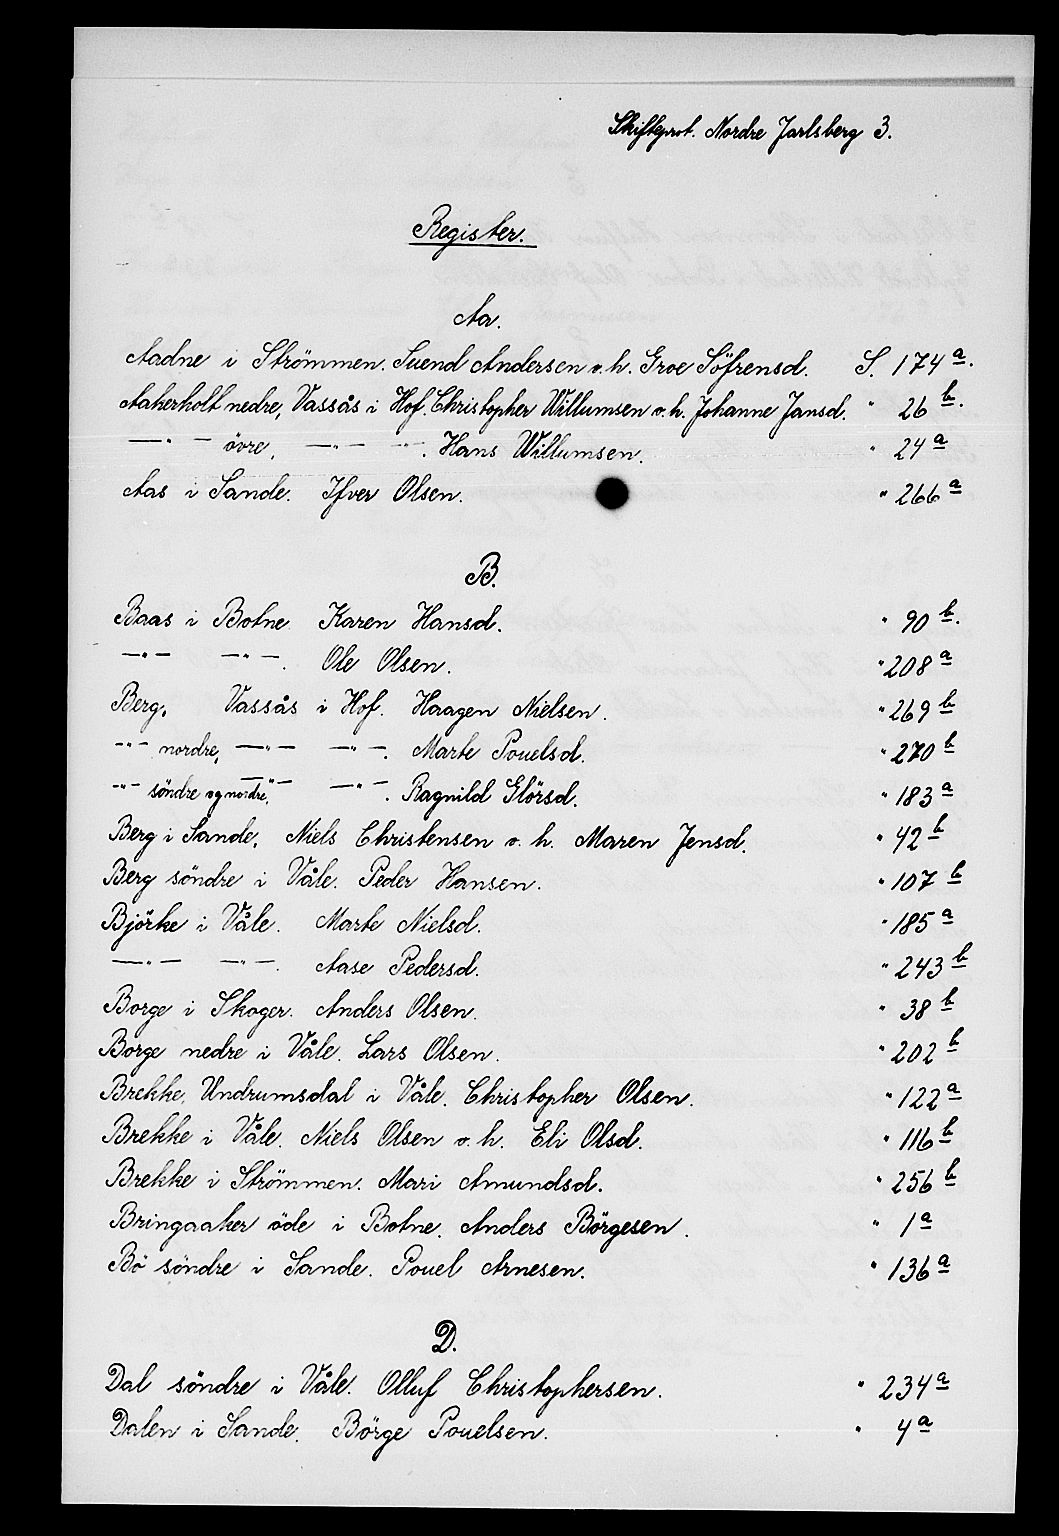 Skifteprot. Nordre Jarlsberg 3.
Register.
Aa.
Aadne i Strömmen. Suend Andersen o. h. Groe Söfrensd. S. 174 a.
Aakerholt nedre, Vassås i Hof. Christopher Willumsen o. h. Johanne Jansd. " 26 b.
—"— övre, —"— —"—. Hans Willumsen. " 24 a
Aas i Sande. Ifver Olsen. " 266 a
B.
Baas i Botne. Karen Hansd. " 90 b.
—"— —"—. Ole Olsen. " 208 a
Berg, Vassås i Hof. Haagen Nielsen. " 269 b
—"— nordre, —"— —"—. Marte Pouelsd. " 270 b
—"— söndre og nordre, —"— —"—. Ragnild Glörsd. " 183 a
Berg i Sande, Niels Christensen o. h. Maren Jensd. " 42 b
Berg söndre i Våle. Peder Hansen. " 107 b
Björke i Våle. Marte Nielsd. " 185 a
—"— —"—. Aase Pedersd. " 243 b
Borge i Skoger. Anders Olsen. " 38 b
Borge nedre i Våle. Lars Olsen. " 202 b
Brekke, Undrumsdal i Våle. Christopher Olsen. " 122 a
Brekke i Våle. Niels Olsen o. h. Eli Olsd. " 116 b
Brekke i Strömmen. Mari Amundsd. " 256 b
Bringaaker öde i Botne. Anders Börgesen. " 1 a
Bö söndre i Sande. Pouel Arnesen. " 136 a
D.
Dal söndre i Våle. Olluf Christophersen. " 234 a
Dalen i Sande. Börge Pouelsen. " 4 a